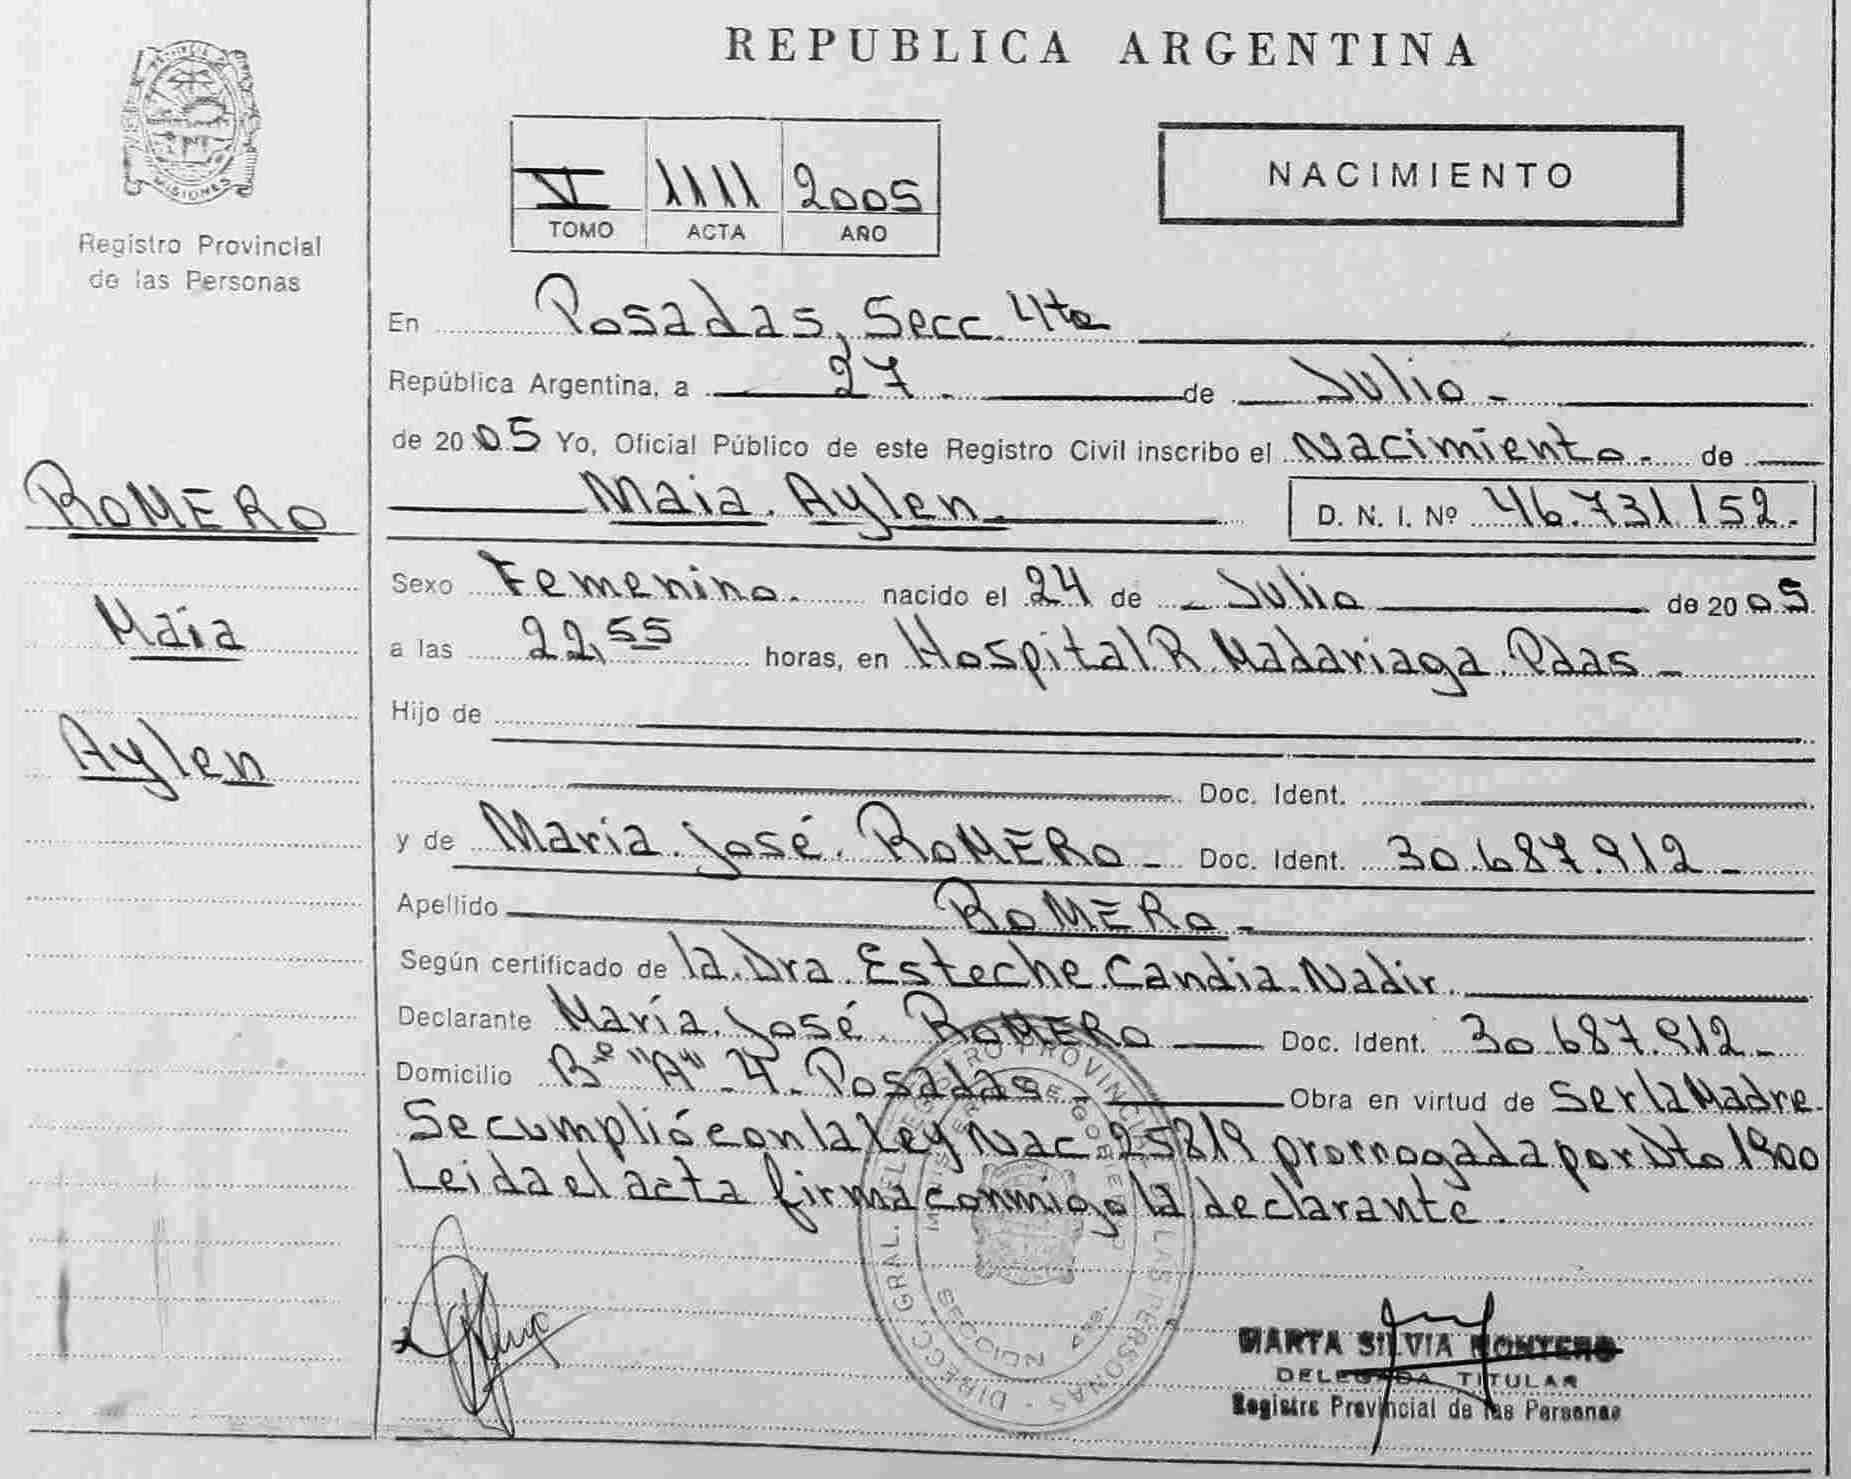 REPUBLICA ARGENTINA
MISIONES
Registro Provincial
de las Personas
V 1111 2005
TOMO ACTA AÑO
NACIMIENTO
En Posadas, Secc. 4ta
República Argentina, a 27 de Julio
de 2005 Yo, Oficial Público de este Registro Civil inscribo el Nacimiento de
Maia Aylen D. N. I. Nº 46.731.152.
ROMERO
Maia
Aylen
Sexo Femenino. nacido el 24 de Julio de 2005
a las 22,55 horas, en Hospital R. Madariaga. Pdas
Hijo de
Doc. Ident.
y de María José ROMERO Doc. Ident. 30.687.912
Apellido ROMERO
Según certificado de la Dra. Esteche Candia Nadir.
Declarante María José ROMERO Doc. Ident. 30.687.912
Domicilio Bº "A" 4 Posadas Obra en virtud de Ser la Madre.
Se cumplió con la Ley Nac. 25819 prorrogada por Dto 1900
Leida el acta firma conmigo la declarante.
DIRECC. GRAL. DEL REGISTRO PROVINCIAL DE LAS PERSONAS
MARTA SILVIA MONTERO
DELEGADA TITULAR
Registro Provincial de las Personas